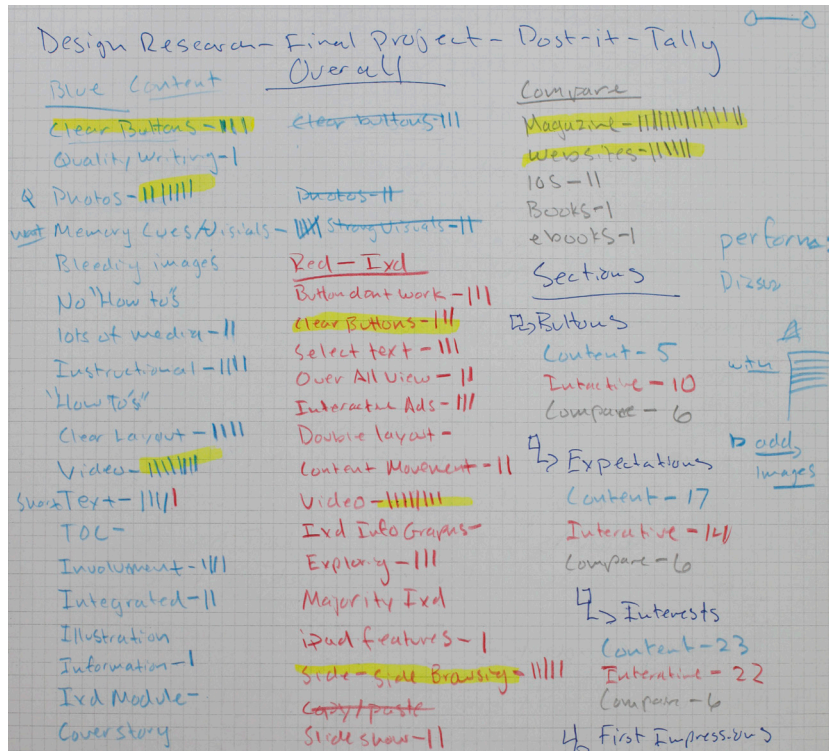 Design Research - Final Project - Post-it - Tally
Overall
Blue Content
Clear Buttons - IIII
Quality writing - I
Q Photos - IIIIIIII
want Memory Cues/Visials -
Bleedig images
No "How to's"
lots of media - II
Instructional - IIII
"How To's"
Clear Layout - IIII
Video - IIIIIIII
Short Text - IIIII
TOC -
Involvment - IIII
Integrated - II
Illustration
Information - I
Ixd Module -
Cover story
Clear buttons III
Photos - II
Strong Visuals - II
Red - Ixd
Button dont work - III
Clear Buttons - III
Select text - III
Over All View - II
Interactive Ads - III
Double layout -
Content Movement - II
Video - IIIIIIII
Ixd Info Graphs -
Explorig - III
Majority Ixd
ipad features - I
Side - Side Browsig - IIIII
Copy/paste
Slide show - II
Compare
Magazine - IIIIIIIIIIIIII
Websites - IIIIII
IOS - II
Books - I
ebooks - I
Sections
Buttons
Content - 5
Interactive - 10
Compare - 6
Expectations
Content - 17
Interative - 14
Compare - 6
Interests
Content - 23
Interative - 22
Compare - 6
First Impressions
performa
with
add
images